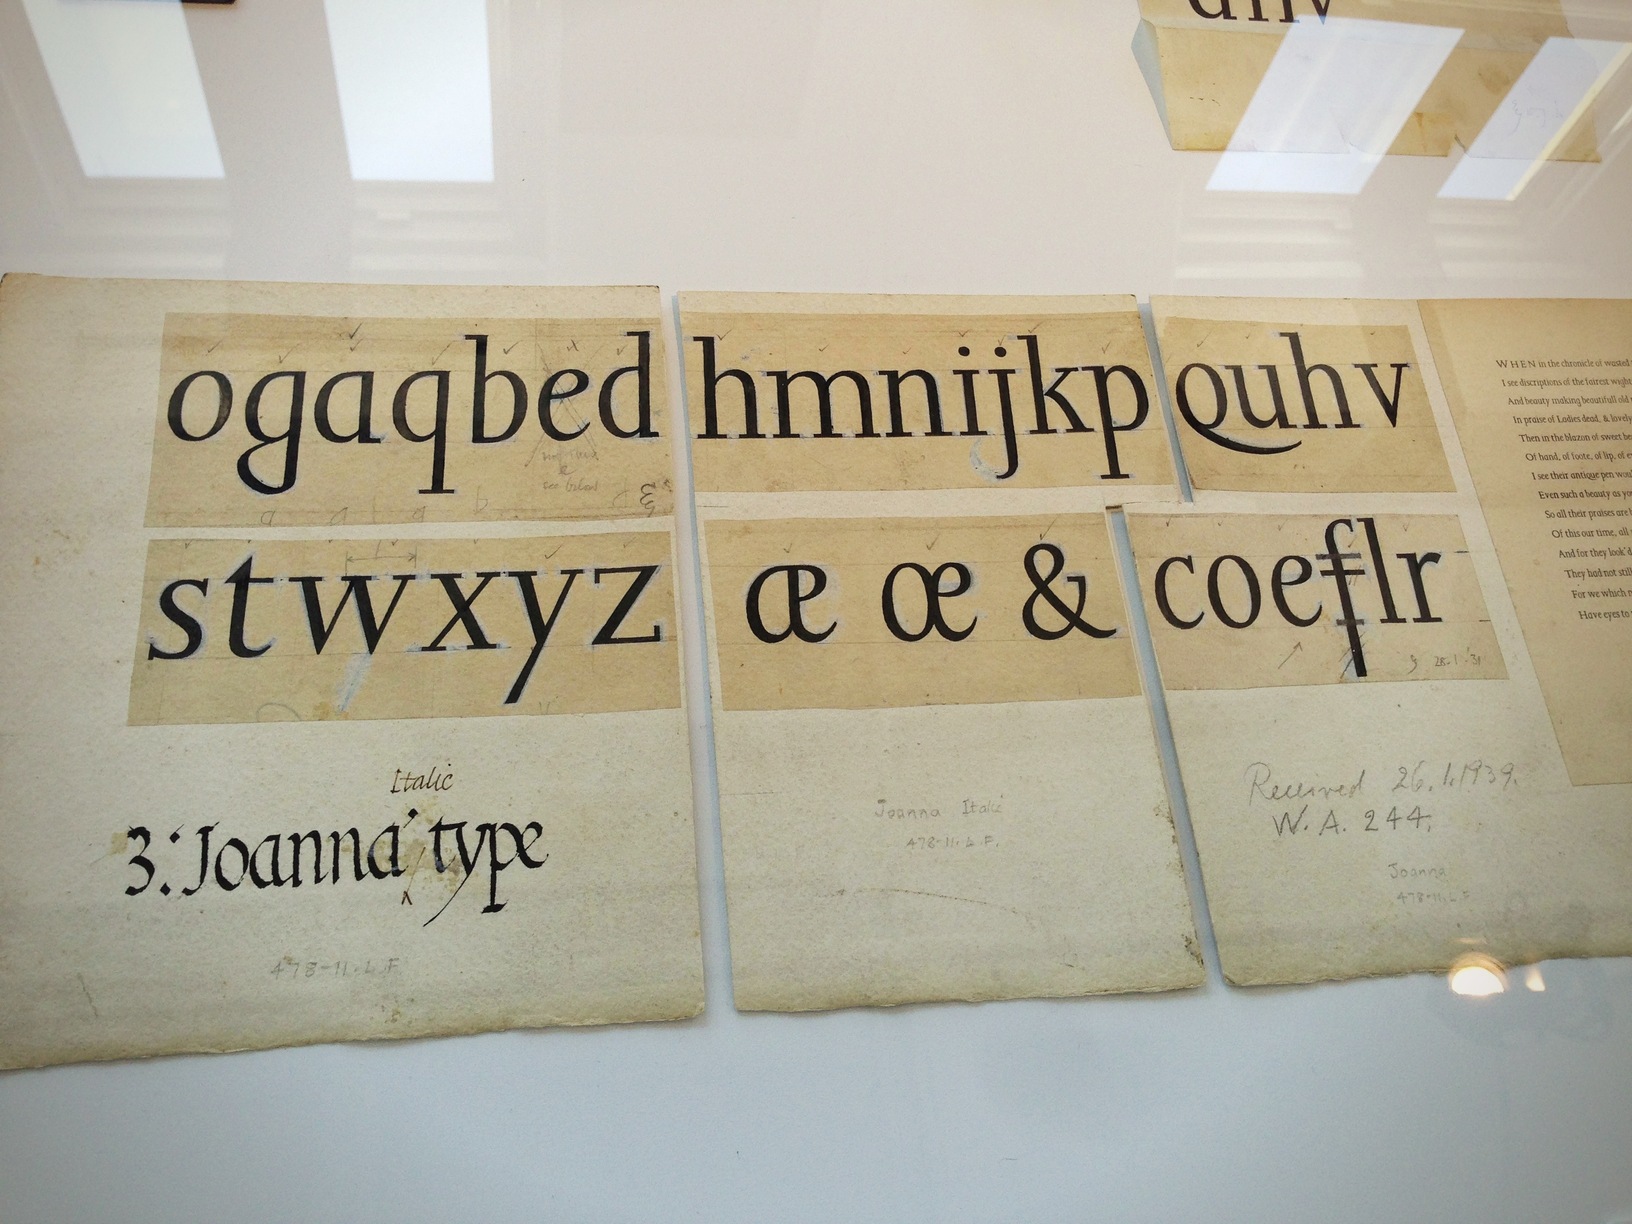 uhv
ogaqbed
hmnijkp
quhv
see below
stwxyz
æ œ &
coeflr
28·1·31
Italic
3: 'Joanna' type
478-11·L.F.
Joanna Italic
478-11.L.F.
Received 26.1.1939.
W. A. 244.
Joanna
478-11.L.F.
WHEN in the chronicle of wasted
I see discriptions of the fairest wight
And beauty making beautifull old
In praise of Ladies dead, & lovely
Then in the blazon of sweet
Of hand, of foote, of lip, of
I see their antique pen
Even such a beauty as
So all their praises are
Of this our time, all
And for they look'd
They had not still
For we which
Have eyes to